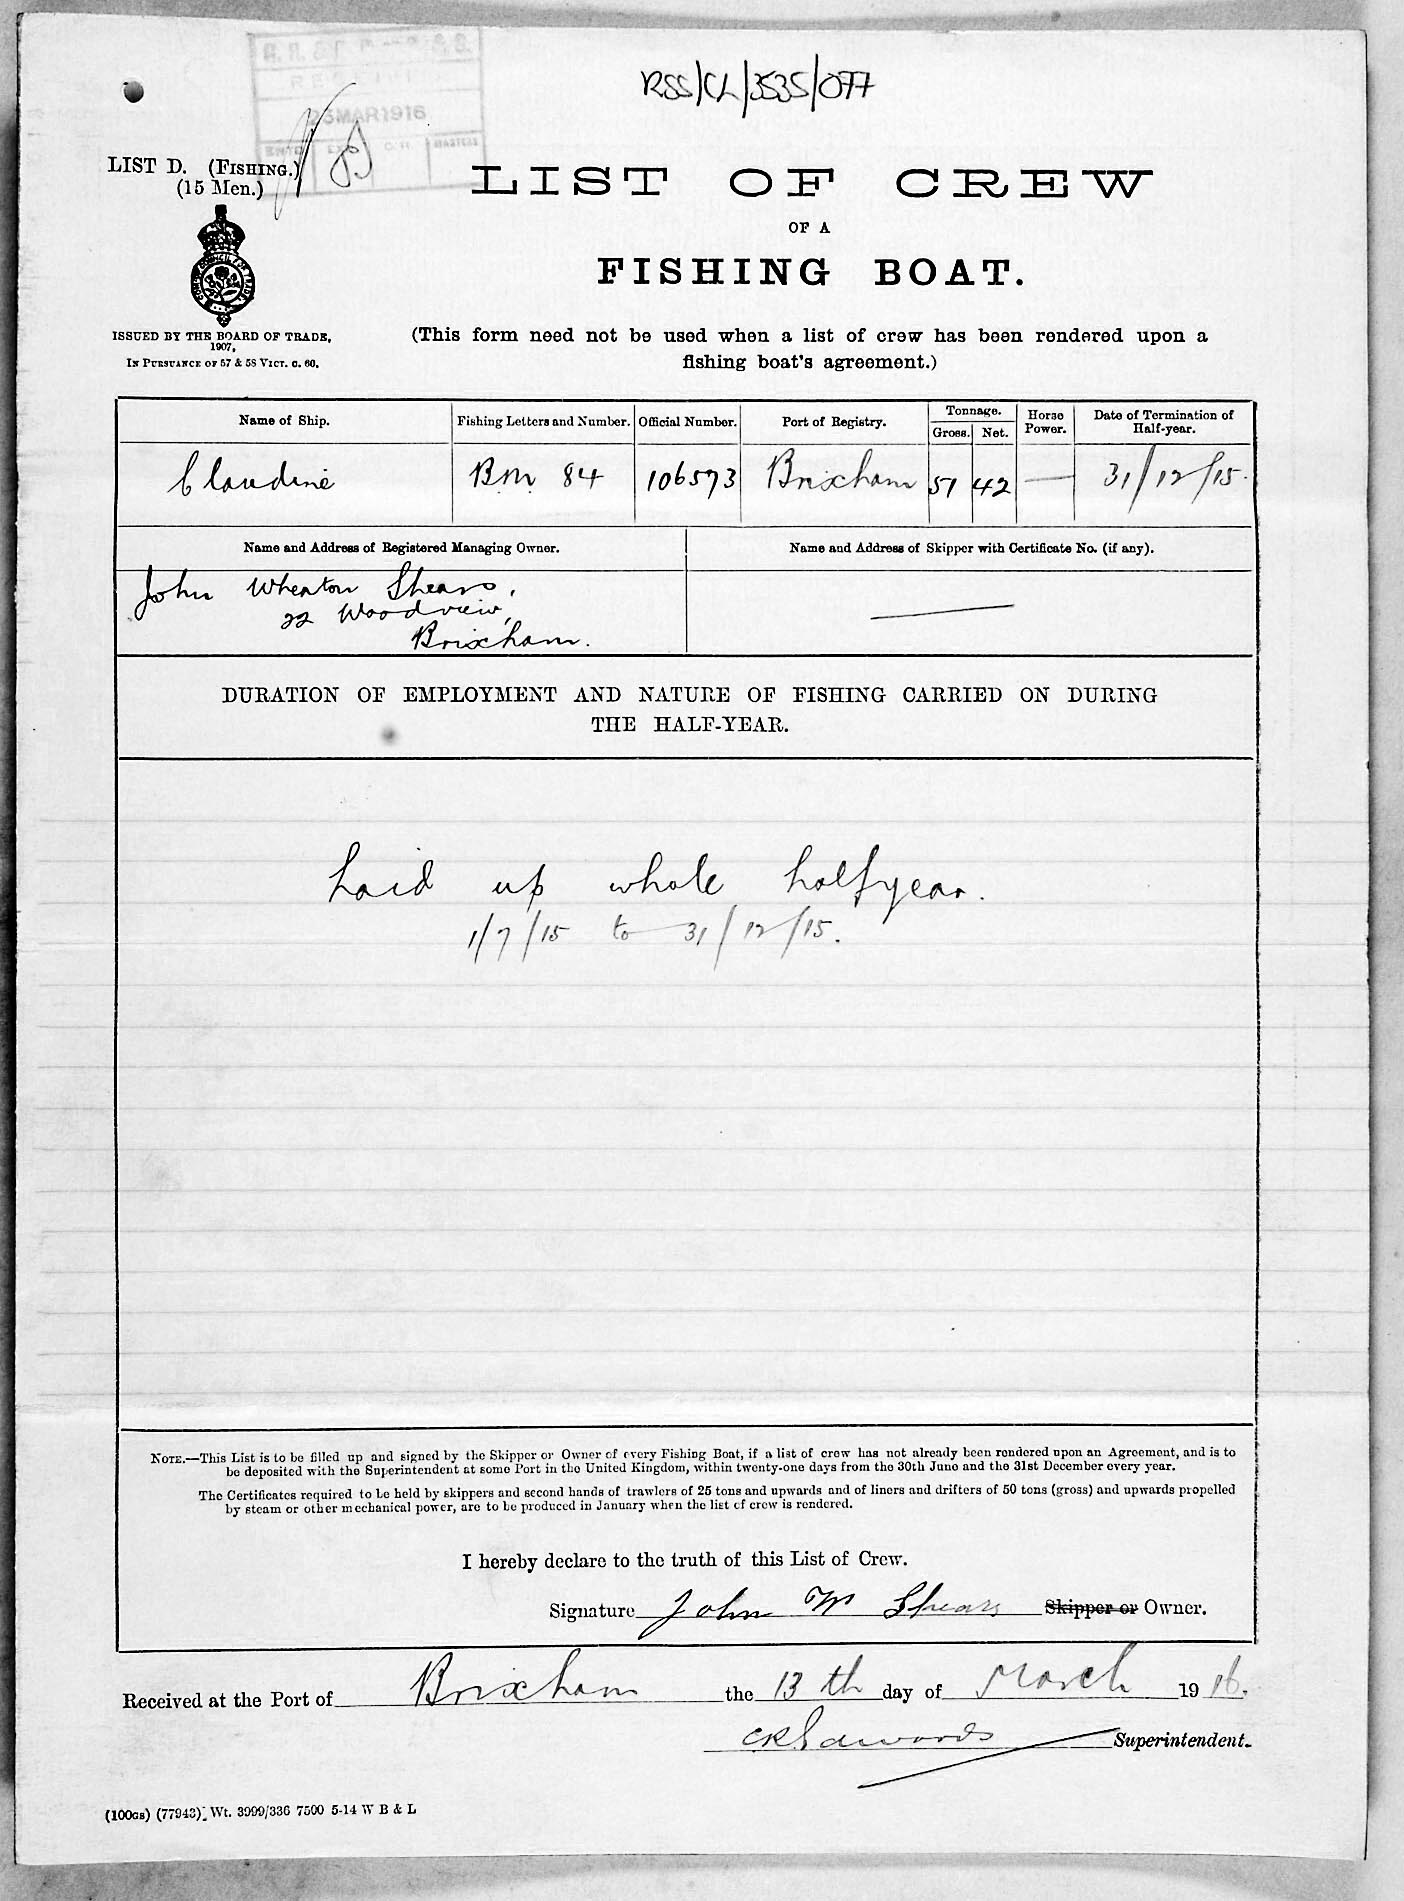 RSS/CL/3535/077
RECEIVED
23 MAR 1916
LIST D. (FISHING.)
(15 Men.)
LIST OF CREW
OF A
FISHING BOAT.
ISSUED BY THE BOARD OF TRADE,
1907,
IN PURSUANCE OF 57 & 58 VICT. C. 60.
(This form need not be used when a list of crew has been rendered upon a
fishing boat's agreement.)
Name of Ship. Fishing Letters and Number. Official Number. Port of Registry. Tonnage. Gross. Net. Horse Power. Date of Termination of Half-year.
Claudine BM 84 106573 Brixham 51 42 — 31/12/15.
Name and Address of Registered Managing Owner. Name and Address of Skipper with Certificate No. (if any).
John Wheaton Shears,
22 Woodview,
Brixham.
DURATION OF EMPLOYMENT AND NATURE OF FISHING CARRIED ON DURING
THE HALF-YEAR.
Laid up whole halfyear.
1/7/15 to 31/12/15.
NOTE.—This List is to be filled up and signed by the Skipper or Owner of every Fishing Boat, if a list of crew has not already been rendered upon an Agreement, and is to
be deposited with the Superintendent at some Port in the United Kingdom, within twenty-one days from the 30th June and the 31st December every year.
The Certificates required to be held by skippers and second hands of trawlers of 25 tons and upwards and of liners and drifters of 50 tons (gross) and upwards propelled
by steam or other mechanical power, are to be produced in January when the list of crew is rendered.
I hereby declare to the truth of this List of Crew.
Signature John W Shears Skipper or Owner.
Received at the Port of Brixham the 13th day of March 1916.
CR Edwards Superintendent.
(100GS) (77943). Wt. 3999/336 7500 5-14 W B & L